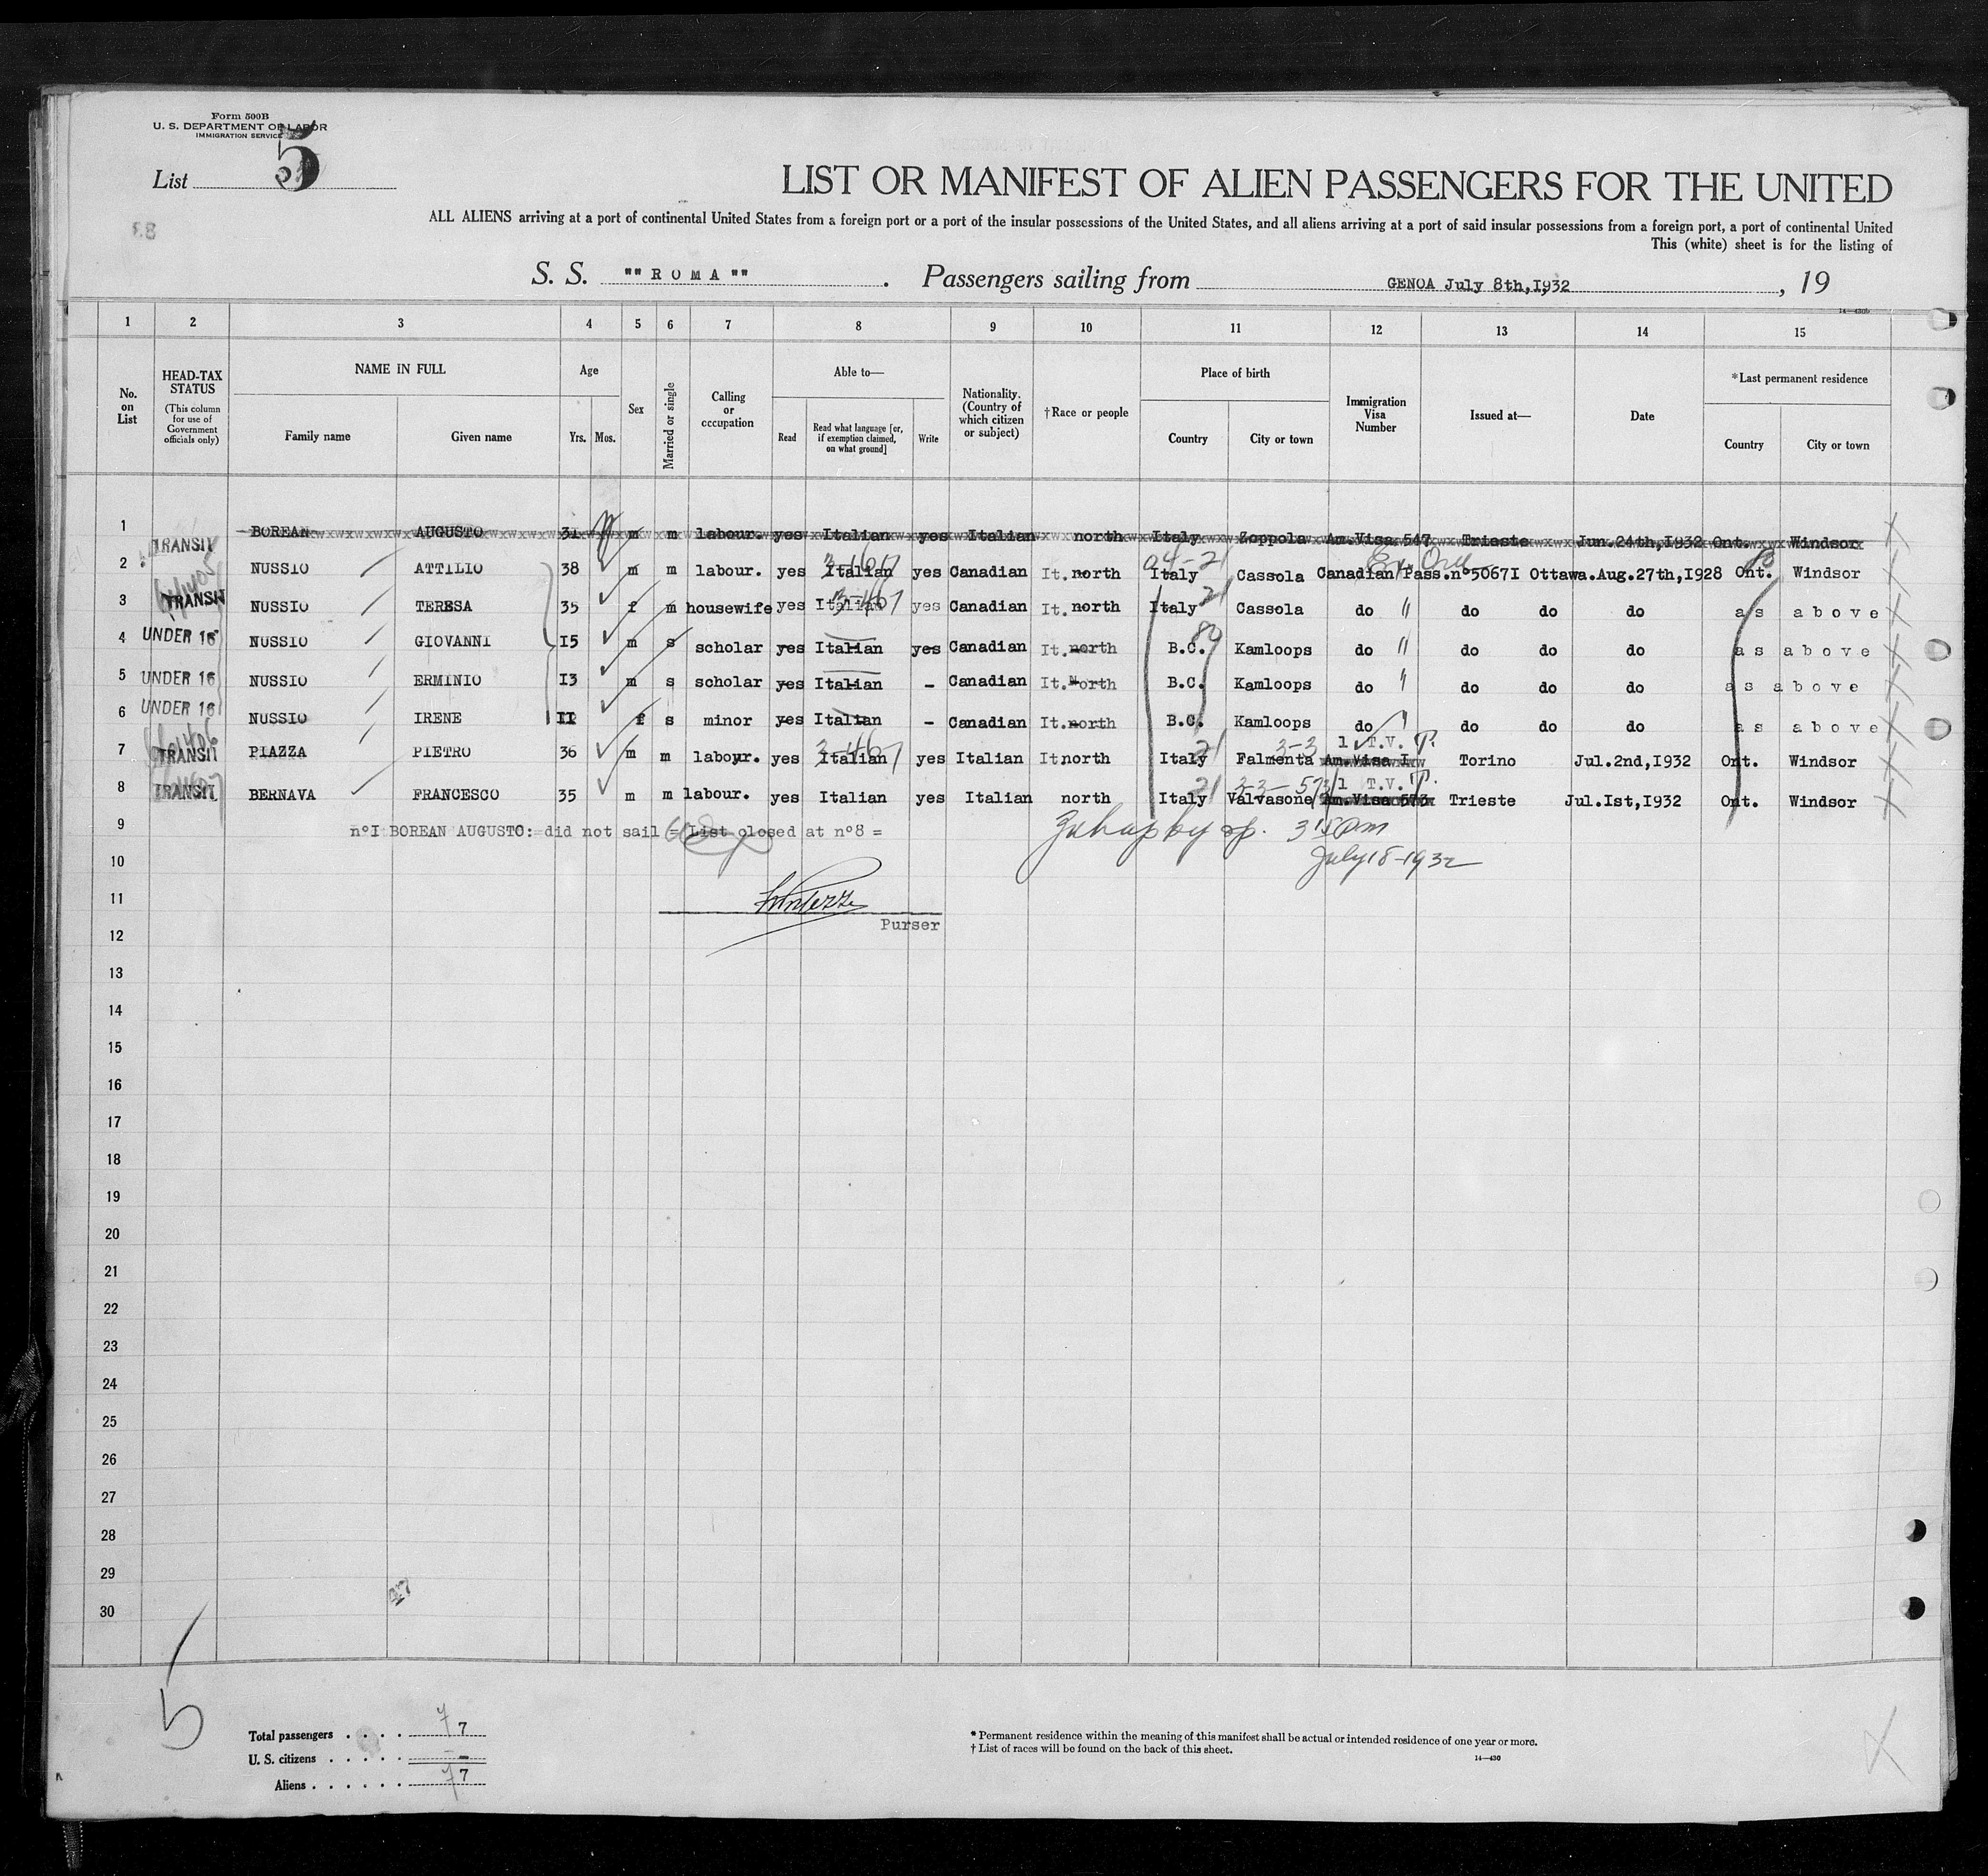 Form 500B
U. S. DEPARTMENT OF LABOR
IMMIGRATION SERVICE
List 5
LIST OR MANIFEST OF ALIEN PASSENGERS FOR THE UNITED
ALL ALIENS arriving at a port of continental United States from a foreign port or a port of the insular possessions of the United States, and all aliens arriving at a port of said insular possessions from a foreign port, a port of continental United
This (white) sheet is for the listing of
S. S. "" R O M A "" . Passengers sailing from GENOA July 8th,I932 , 19
14—430b
1 2 3 4 5 6 7 8 9 10 11 12 13 14 15
No. on List
HEAD-TAX STATUS (This column for use of Government officials only)
NAME IN FULL
Family name Given name
Age
Yrs. Mos.
Sex
Married or single
Calling or occupation
Able to—
Read
Read what language [or, if exemption claimed, on what ground]
Write
Nationality. (Country of which citizen or subject)
†Race or people
Place of birth
Country City or town
Immigration Visa Number
Issued at—
Date
*Last permanent residence
Country City or town
1 TRANSIT BOREAN AUGUSTO 31 m m labour. yes Italian yes Italian north Italy Zoppola Am.Visa 547 Trieste Jun.24th,I932 Ont. Windsor
2 NUSSIO ATTILIO 38 m m labour. yes Italian yes Canadian It.north Italy Cassola Canadian Pass.nº5067I Ottawa.Aug.27th,I928 Ont. Windsor
3 TRANSIT NUSSIO TERESA 35 f m housewife yes Italian yes Canadian It. north Italy Cassola do " do do do as above
4 UNDER 16 NUSSIO GIOVANNI I5 m s scholar yes Italian yes Canadian It.north B.C. Kamloops do " do do do as above
5 UNDER 16 NUSSIO ERMINIO I3 m s scholar yes Italian - Canadian It.North B.C. Kamloops do " do do do as above
6 UNDER 16 NUSSIO IRENE II f s minor yes Italian - Canadian It.north B.C. Kamloops do " do do do as above
7 TRANSIT PIAZZA PIETRO 36 m m labour. yes Italian yes Italian It north Italy Falmenta 1 T.V. Am.Visa I Torino Jul.2nd,I932 Ont. Windsor
8 TRANSIT BERNAVA FRANCESCO 35 m m labour. yes Italian yes Italian north Italy Valvasone 1 T.V. Am.Visa 573 Trieste Jul.Ist,I932 Ont. Windsor
9 nºI BOREAN AUGUSTO: did not sail = List closed at nº8 =
3 15 pm
10 July 18-1932
11
12 Purser
13
14
15
16
17
18
19
20
21
22
23
24
25
26
27
28
29
30
47
5
Total passengers . . . . 7 7
U. S. citizens . . . . . –
Aliens . . . . . . 7 7
* Permanent residence within the meaning of this manifest shall be actual or intended residence of one year or more.
† List of races will be found on the back of this sheet.
14—430